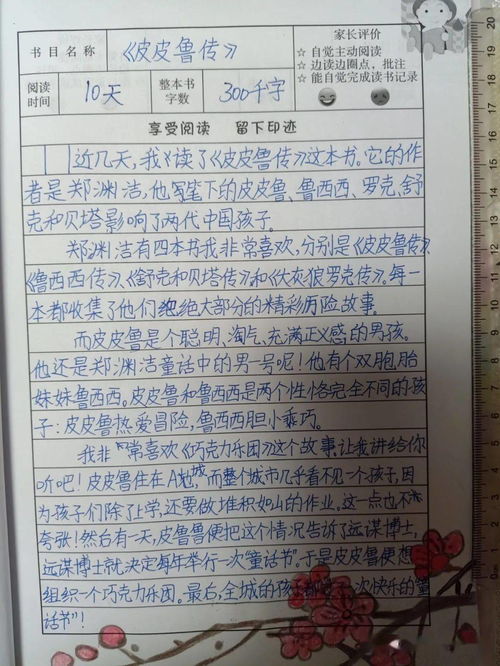 书目名称 《皮皮鲁传》
家长评价
☆ 自觉主动阅读
☆ 边读边圈点，批注
☆ 能自觉完成读书记录
阅读时间 10天 整本书字数 300千字
享受阅读 留下印迹
近几天，我读了《皮皮鲁传》这本书。它的作
者是郑渊洁，他写笔下的皮皮鲁、鲁西西、罗克、舒
克和贝塔影响了两代中国孩子。
郑渊洁有四本书我非常喜欢，分别是《皮皮鲁传》、
《鲁西西传》、《舒克和贝塔传》和《大灰狼罗克传》。每一
本都收集了他们绝大部分的精彩历险故事。
而皮皮鲁是个聪明、淘气、充满正义感的男孩。
他还是郑渊洁童话中的男一号呢！他有个双胞胎
妹妹鲁西西。皮皮鲁和鲁西西是两个性格完全不同的孩
子：皮皮鲁热爱冒险，鲁西西胆小乖巧。
我非常喜欢《巧克力乐团》这个故事，让我讲给你
听吧！皮皮鲁住在A城，而整个城市几乎看不见一个孩子，因
为孩子们除了上学，还要做堆积如山的作业，这一点也不
夸张！然台有一天，皮鲁鲁便把这个情况告诉了远谋博士，
远谋博士就决定每年举行一次“童话节”。于是皮皮鲁便想
组织一个巧克力乐团。最后，全城的孩子 一次快乐的童
话节”！